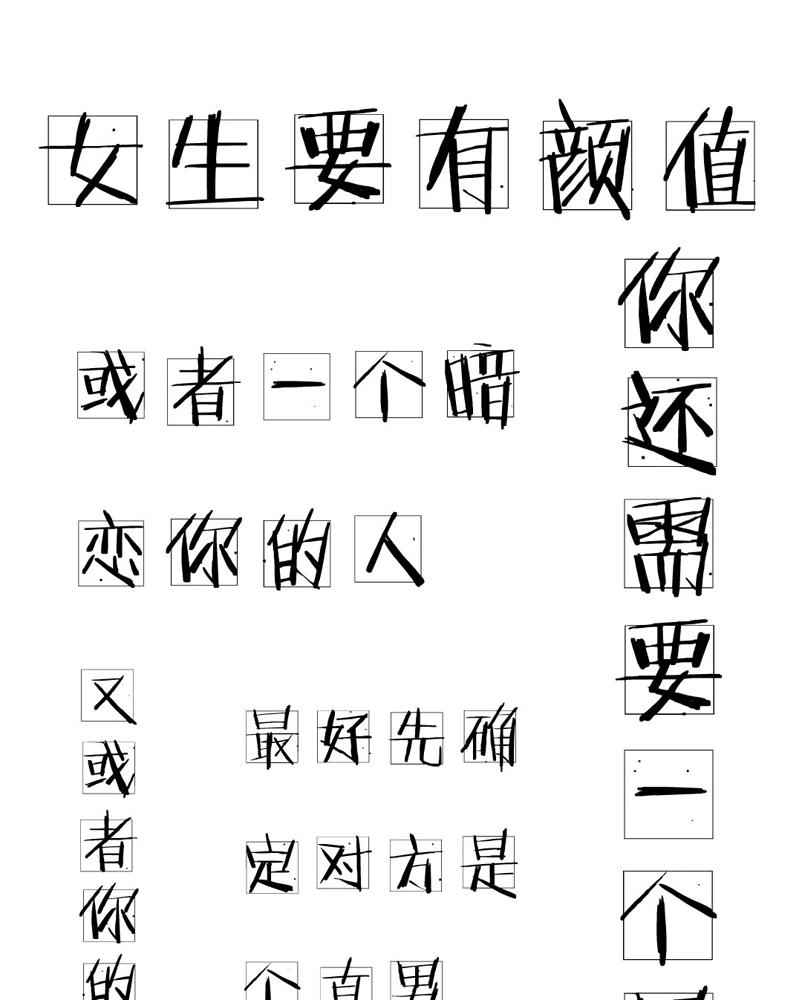 女生要有颜值
你还需要一个
或者一个暗
恋你的人
又或者你的
最好先确
定对方是
个直男